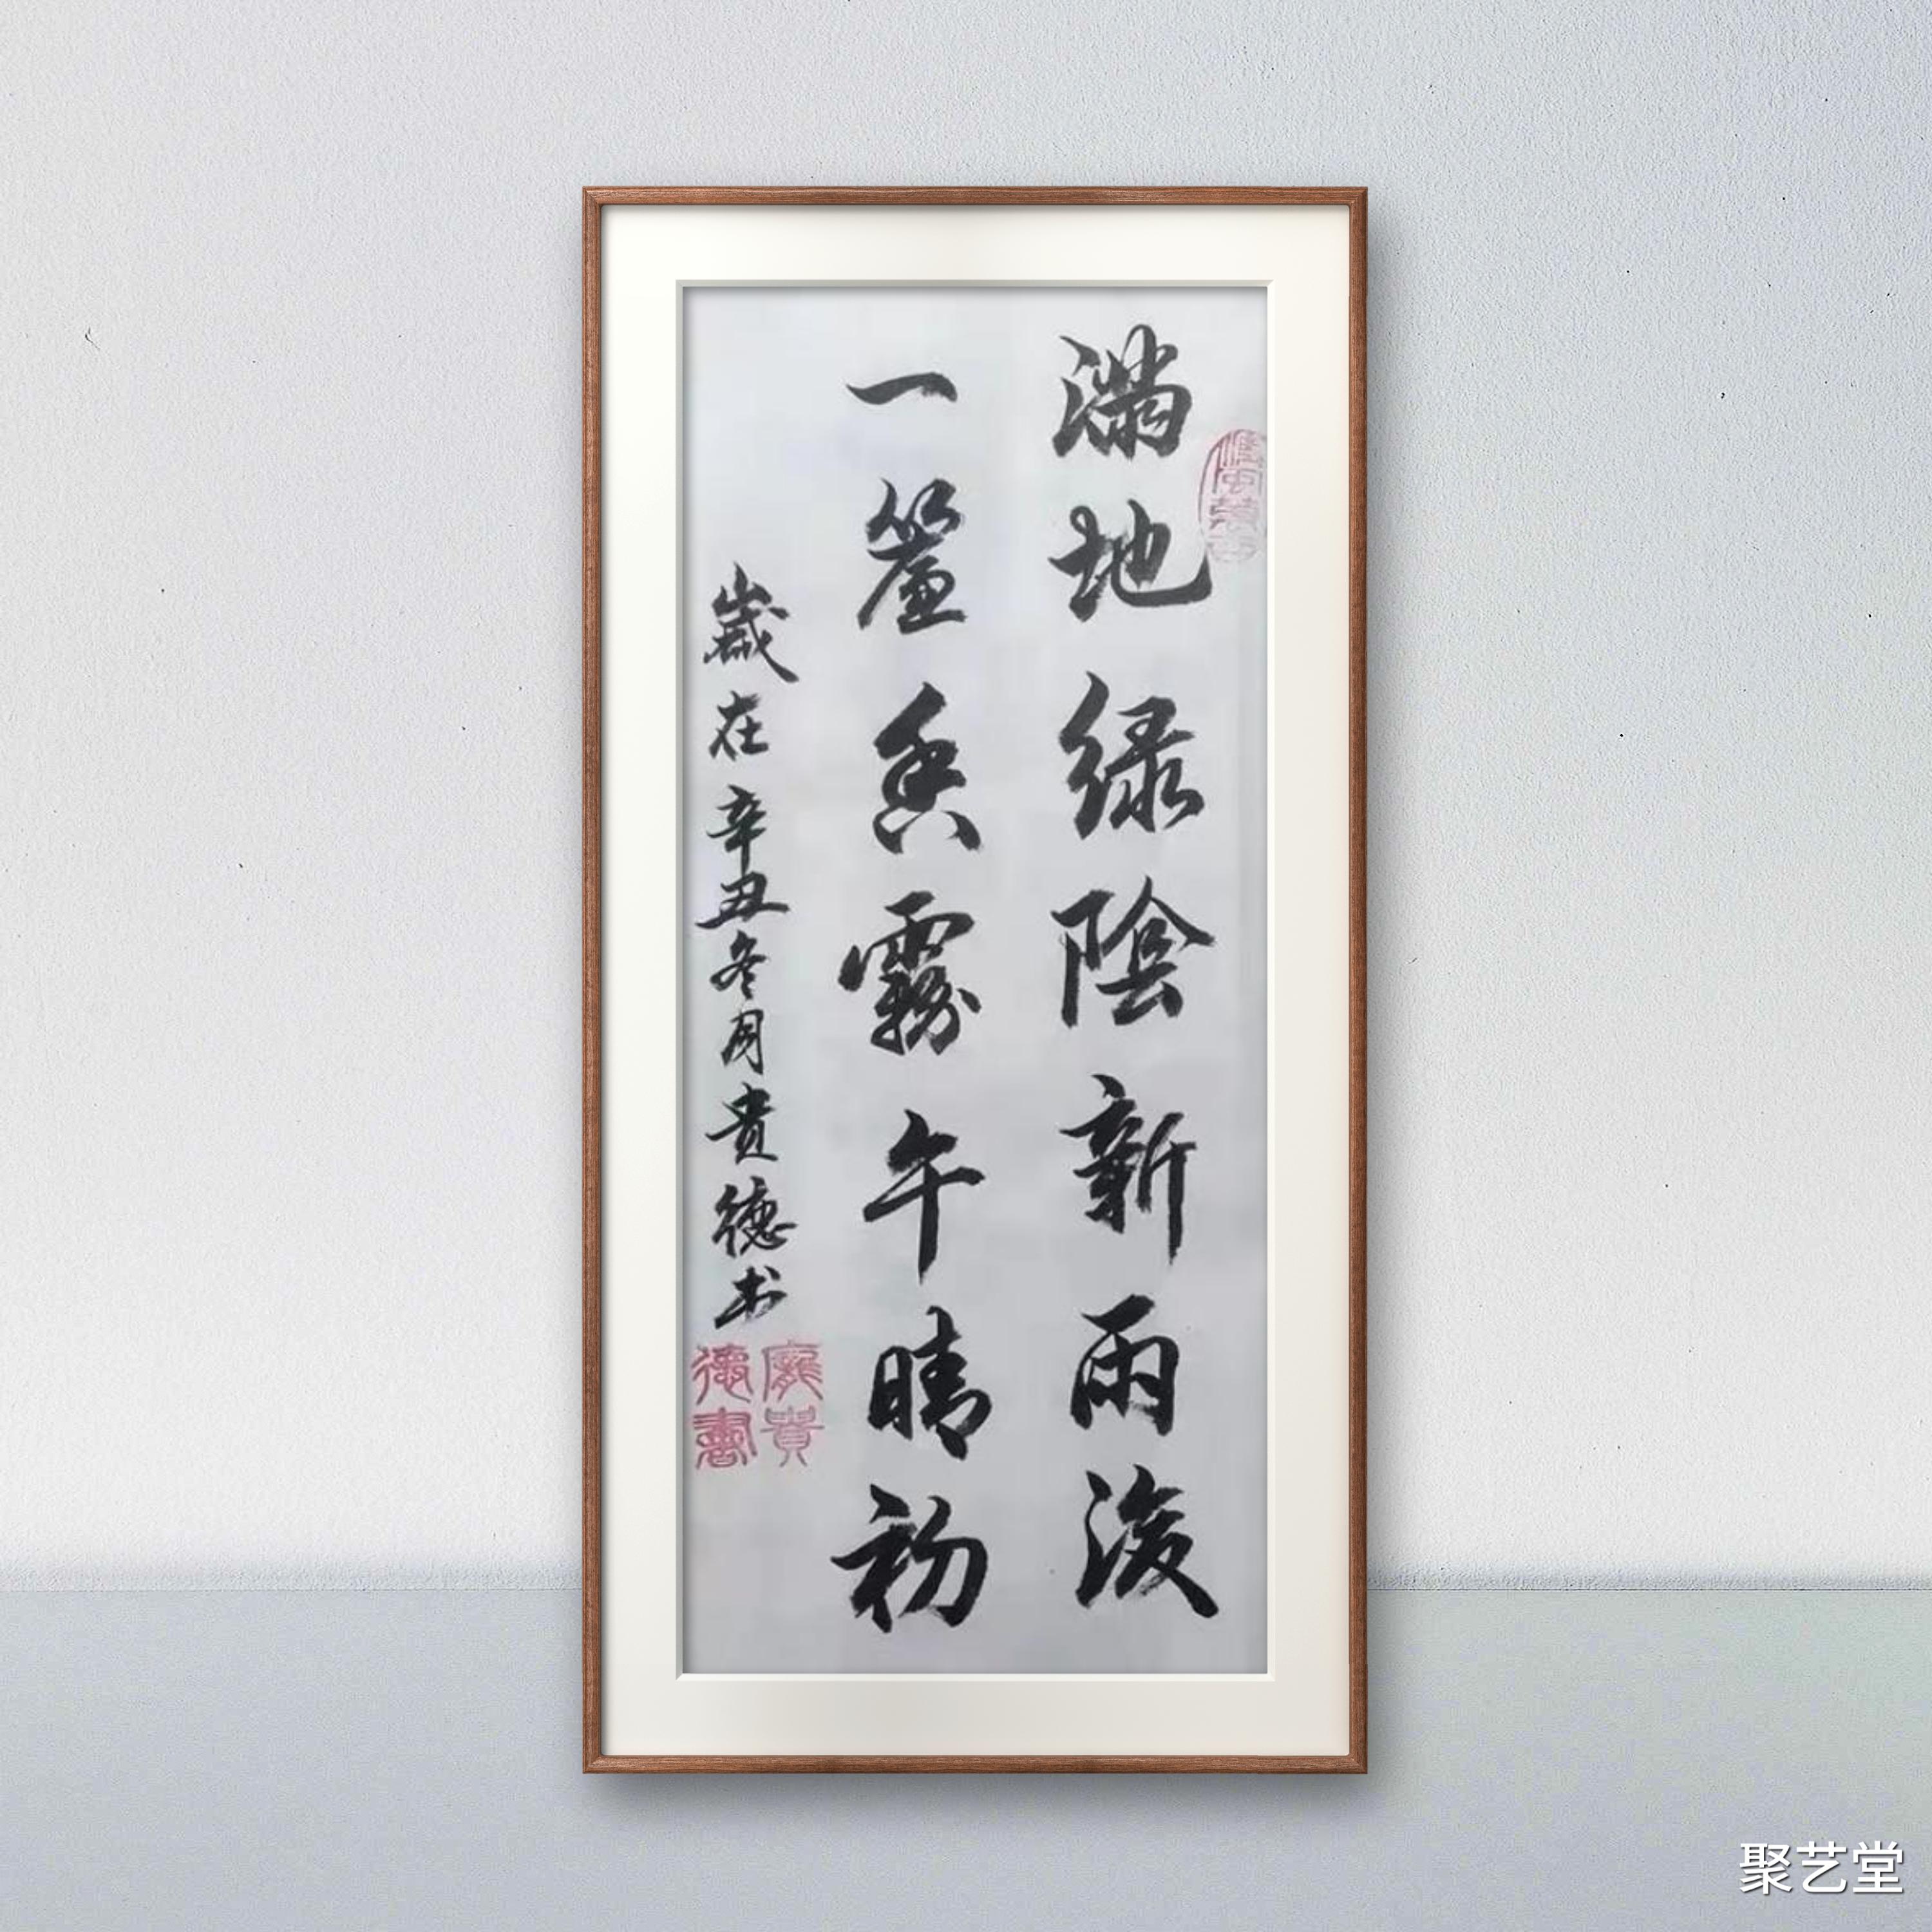 满地绿陰新雨後
一簾香霧午晴初
歲在辛丑冬月贵德书
龐貴德書
聚艺堂